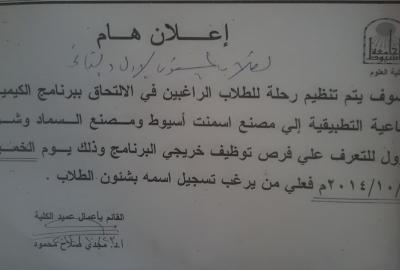 إعلان هام
لطلاب المستوى الأول والثاني
كلية العلوم
سوف يتم تنظيم رحلة للطلاب الراغبين في الالتحاق ببرنامج الكيمي
ناعية التطبيقية إلي مصنع اسمنت أسيوط ومصنع السماد وش
ول للتعرف علي فرص توظيف خريجي البرنامج وذلك يوم الخمي
٢٠١٤/١٠/ م فعلي من يرغب تسجيل اسمه بشئون الطلاب .
القائم بأعمال عميد الكلية
أ.د. مجدي صلاح محمود